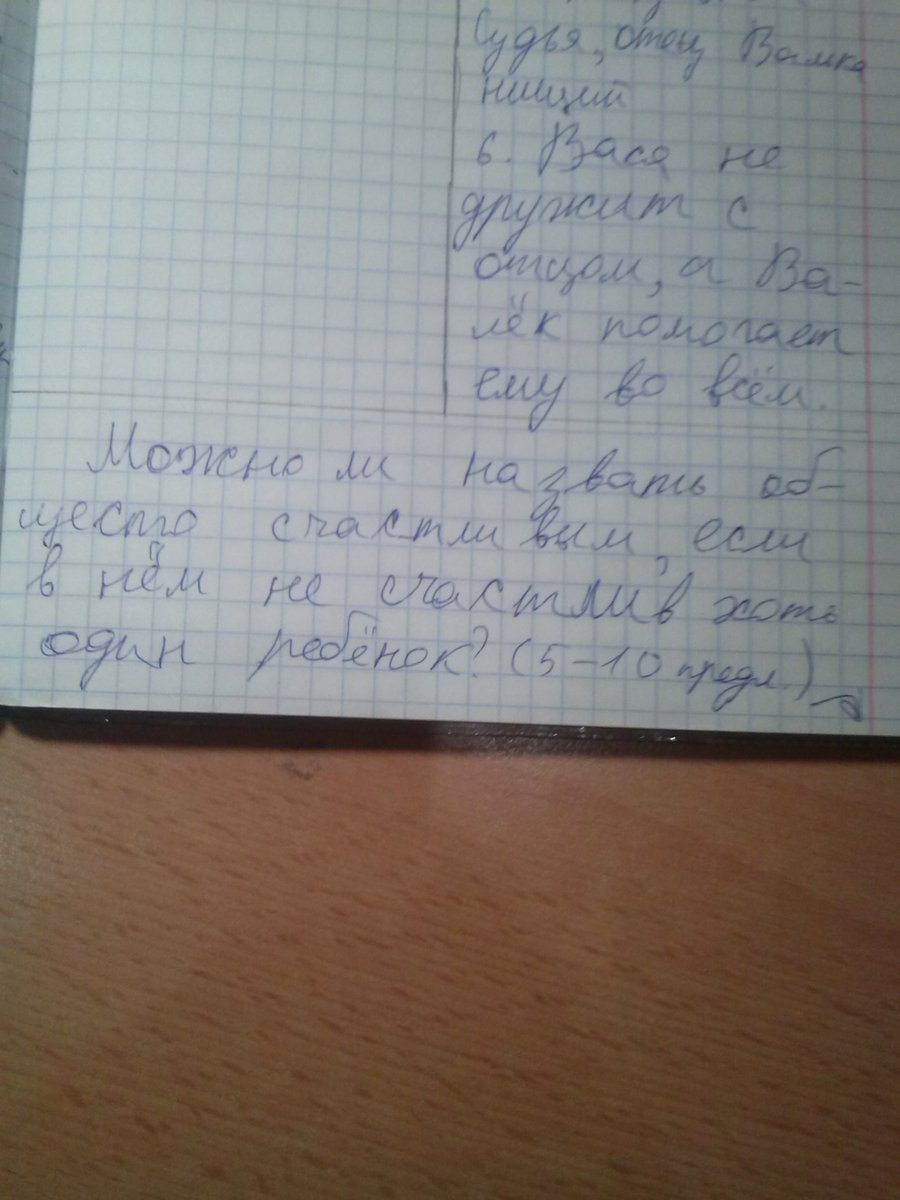 Судья, отец Валька
нищий
6. Вася не
дружит с
отцом, а Ва-
лёк помогает
ему во всём.
Можно ли назвать об-
щество счастливым, если
в нём не счастлив хоть
один ребёнок? (5-10 предл.)